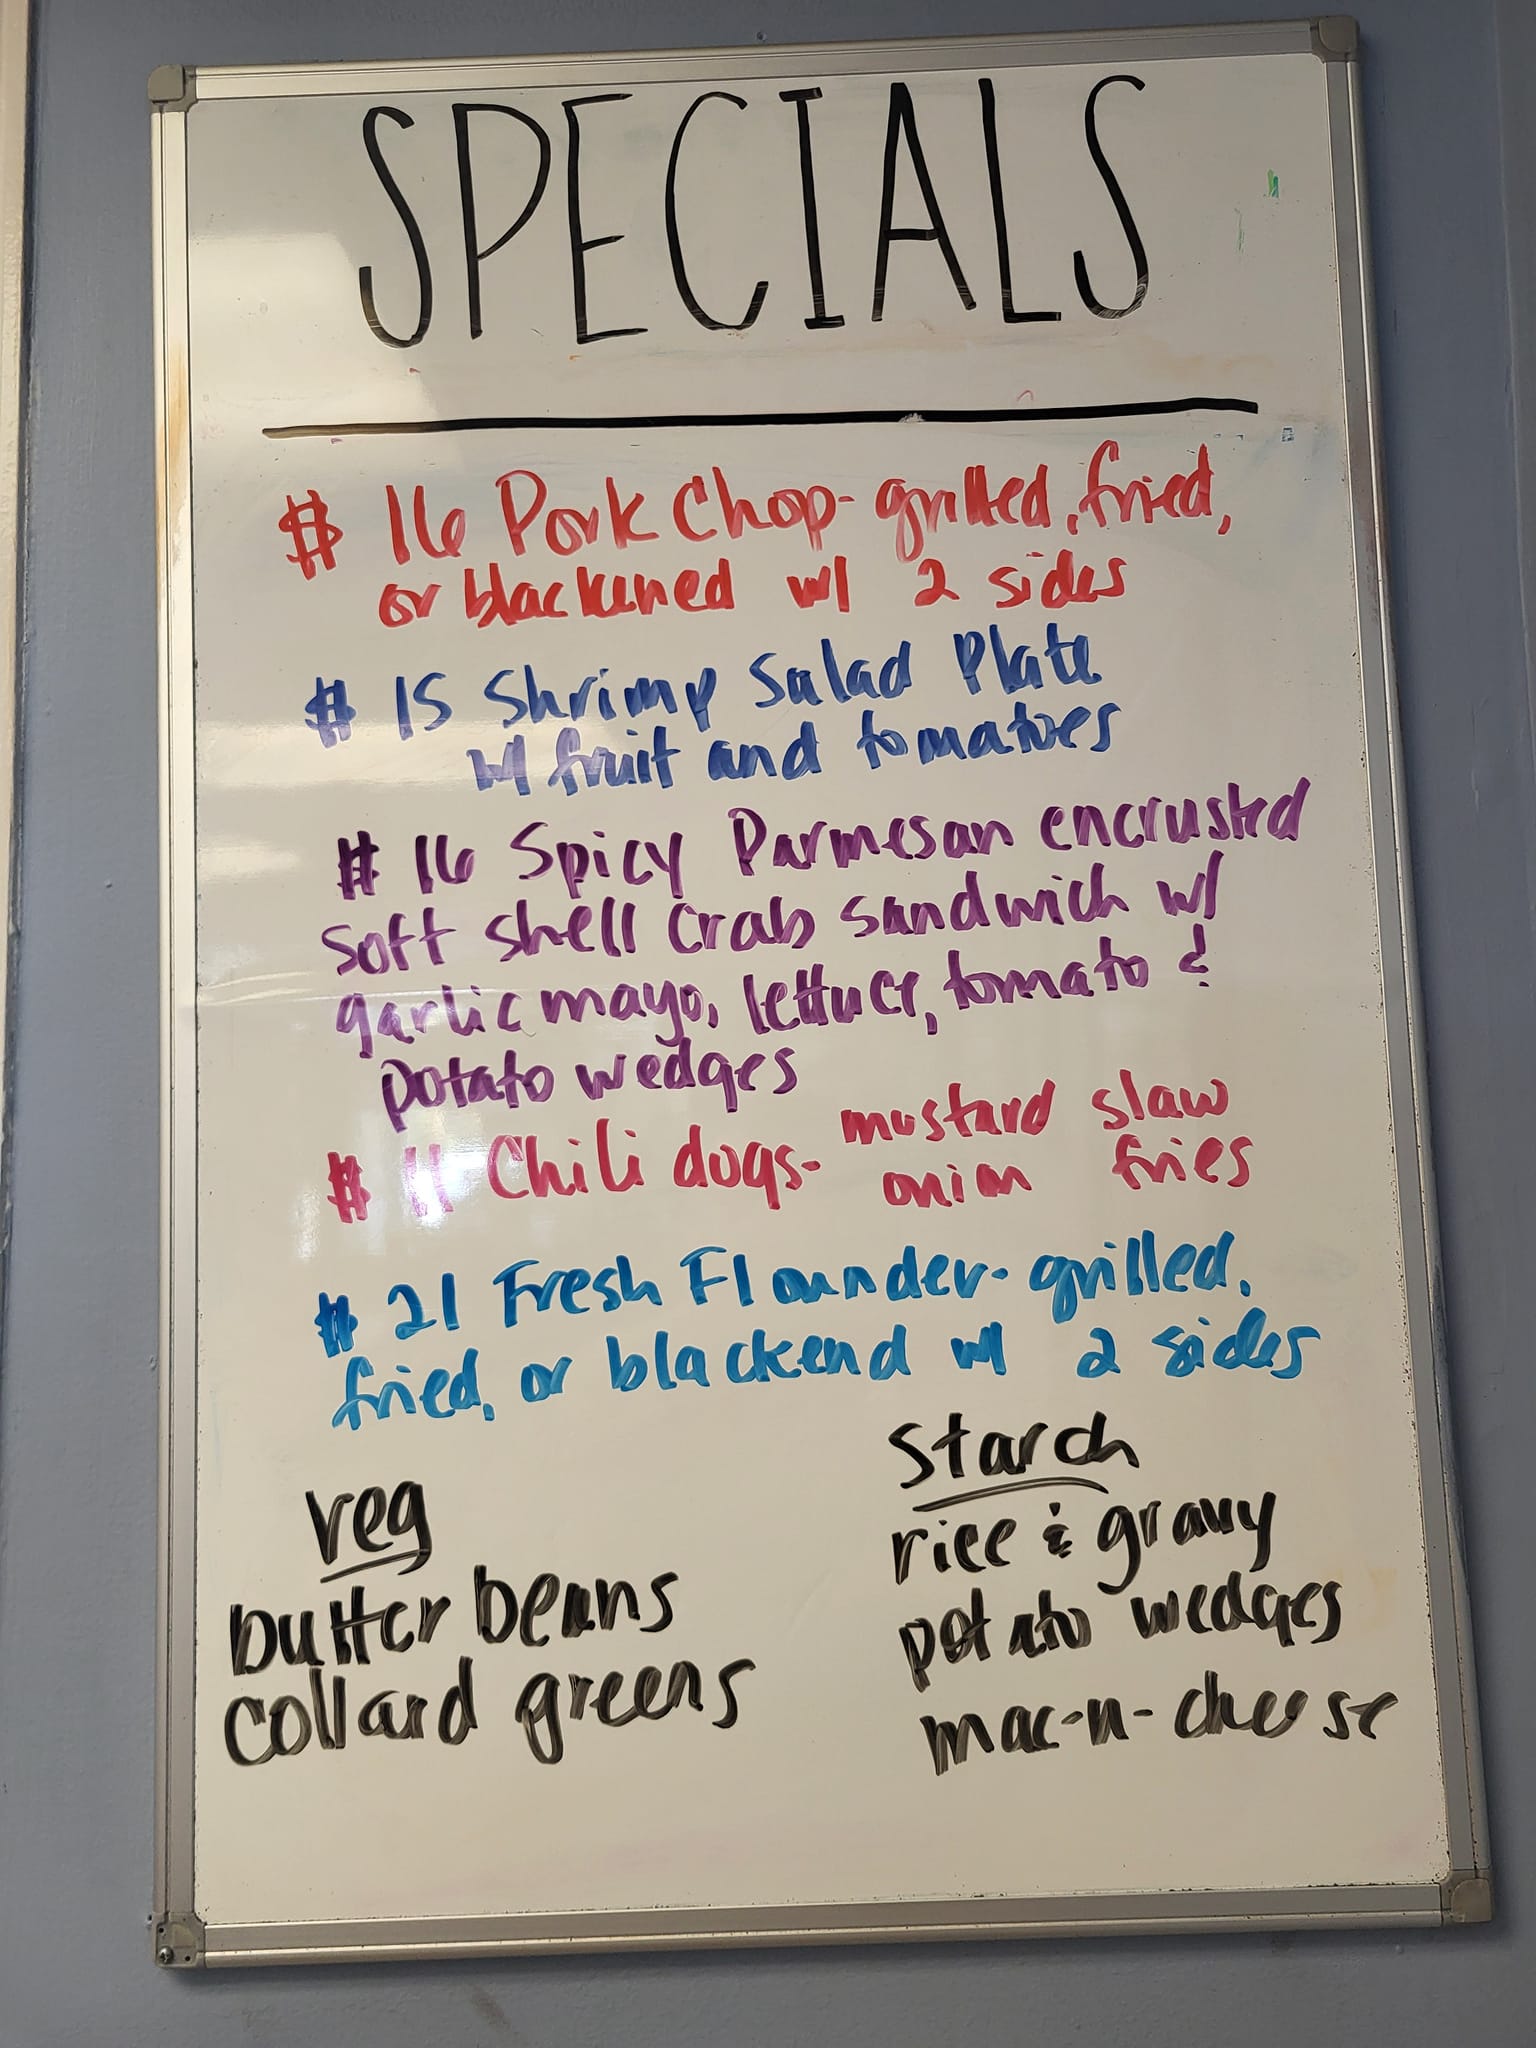 SPECIALS
$ 16 Pork Chop- grilled, fried,
or blackened w/ 2 sides
$ 15 Shrimp Salad Plate
w/ fruit and tomatoes
$ 16 Spicy Parmesan encrusted
soft shell crab sandwich w/
garlic mayo, lettuce, tomato &
potato wedges
$ 11 Chili dogs- mustard slaw
onion fries
$ 21 Fresh Flounder- grilled,
fried, or blackend w/ 2 sides
veg
butter beans
collard greens
starch
rice & gravy
potato wedges
mac-n-cheese